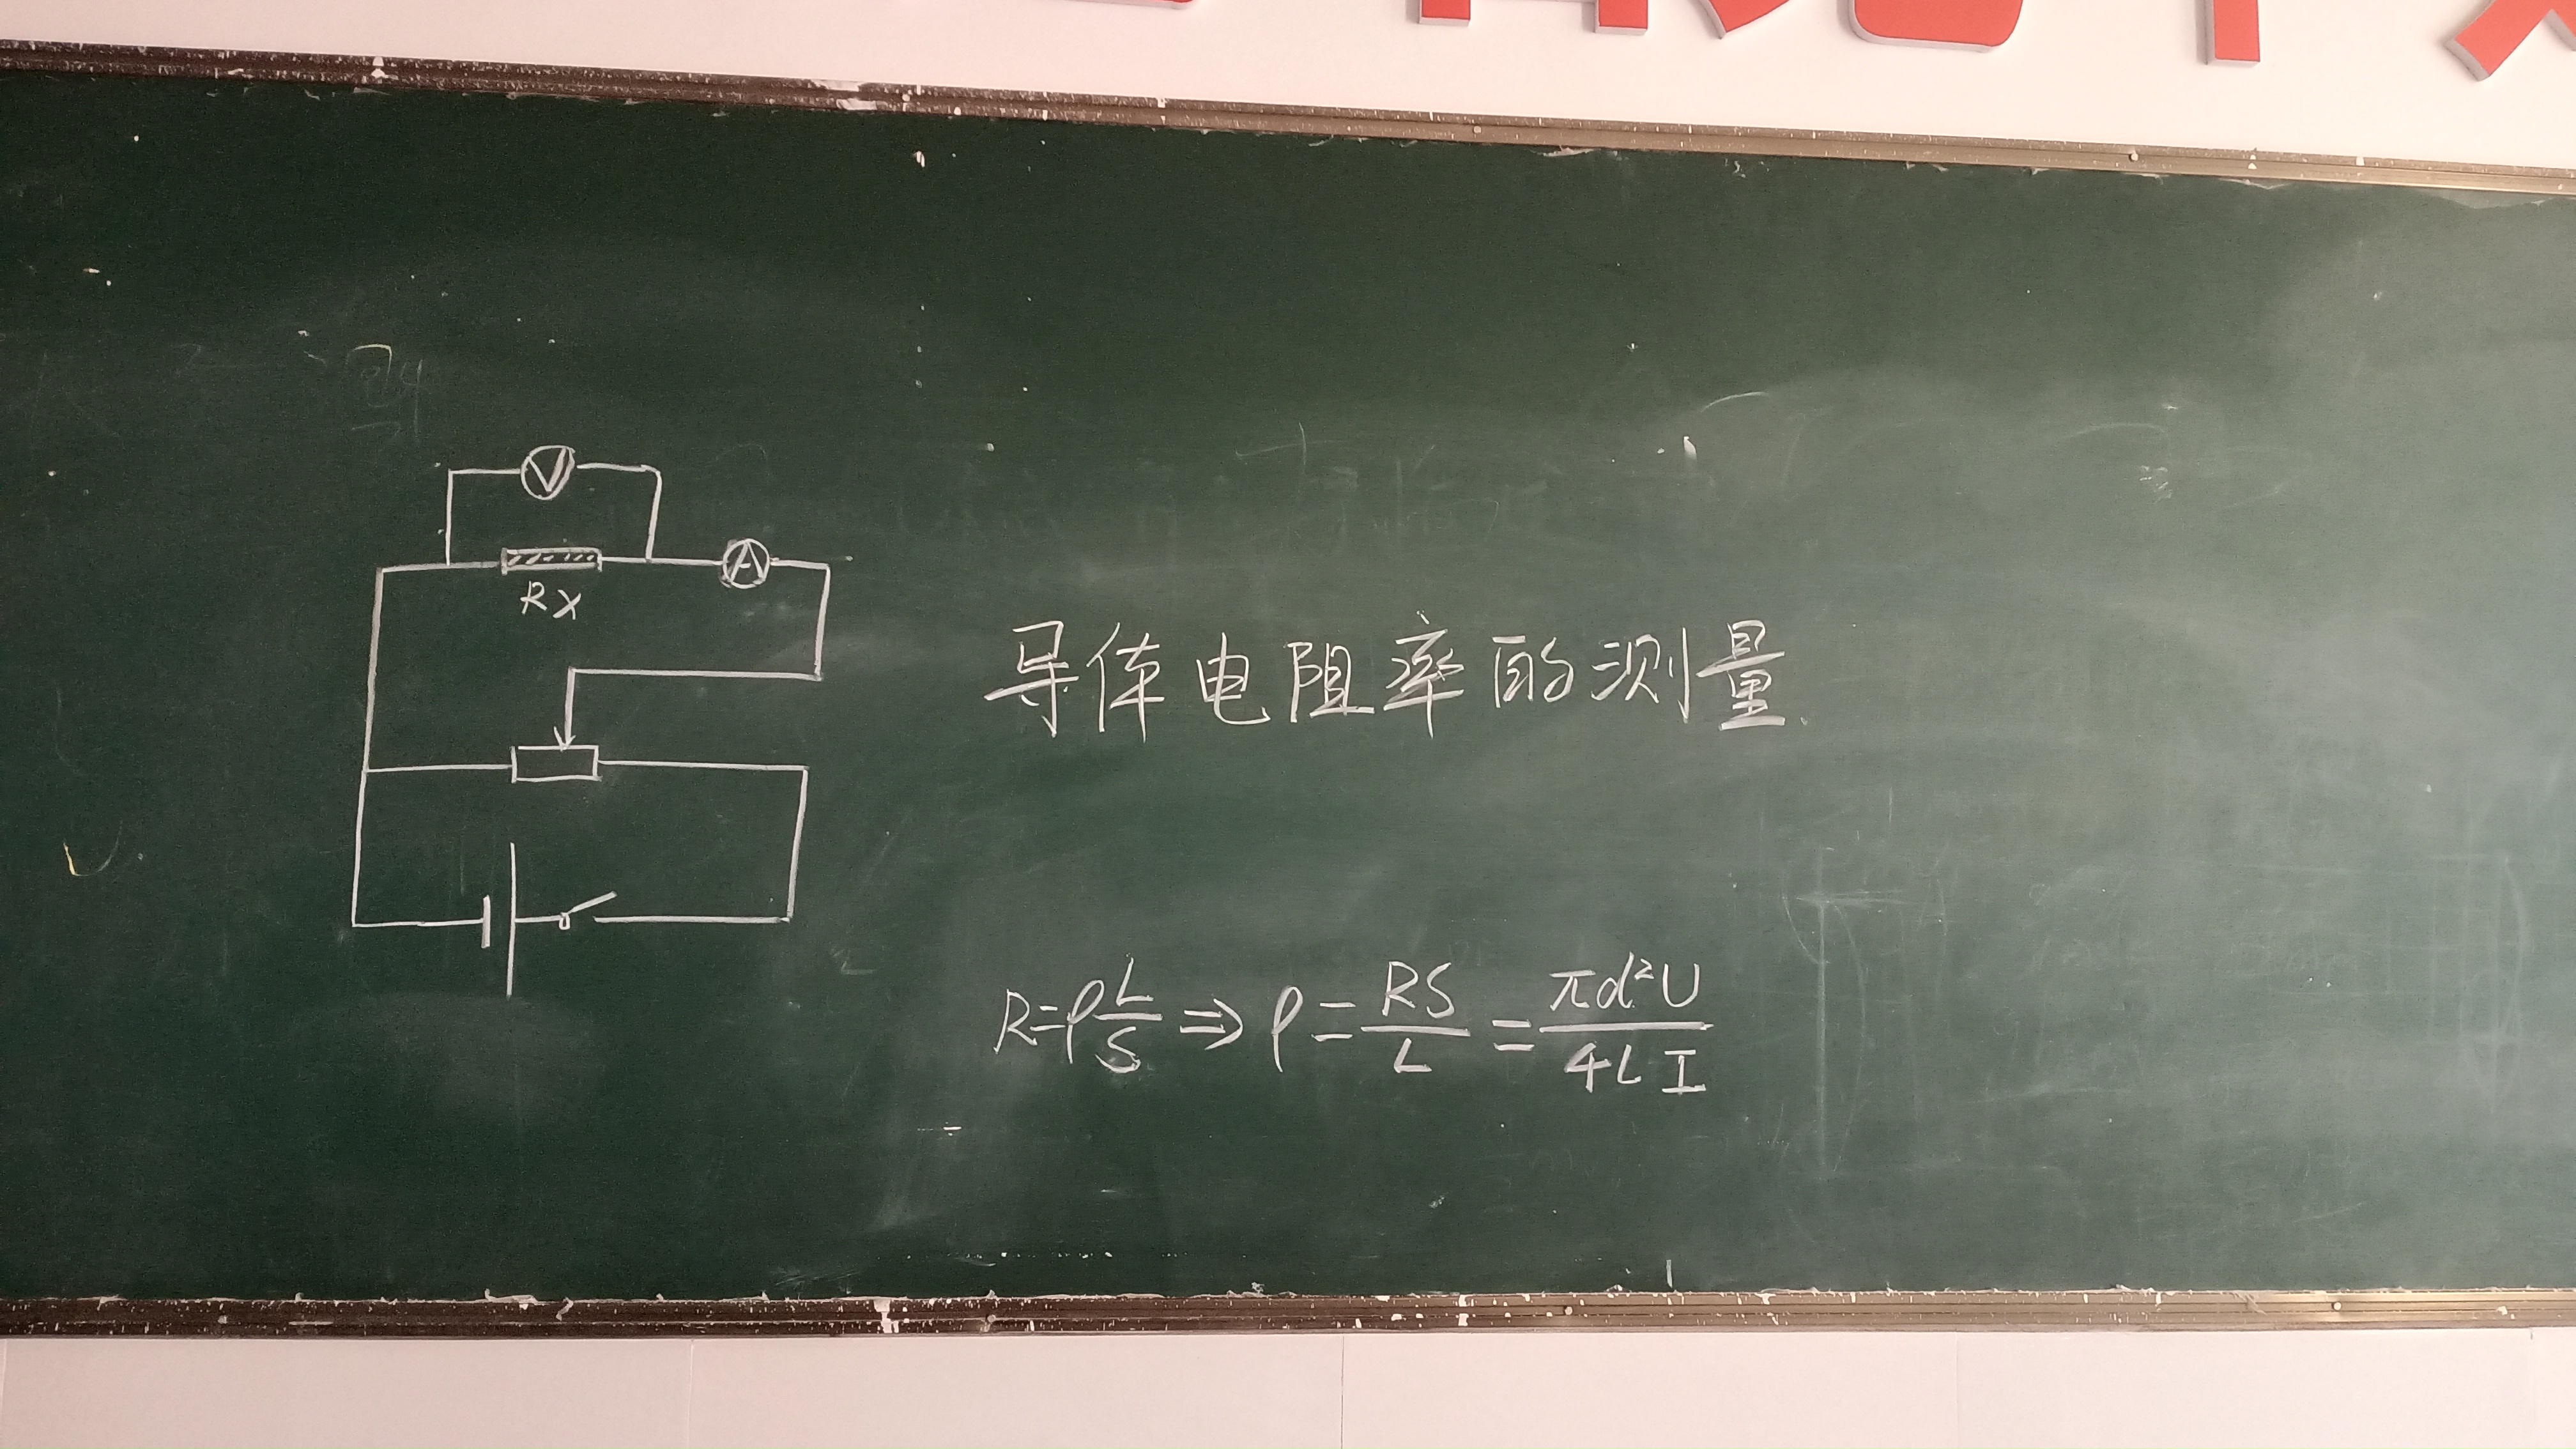 V
A
Rx
导体电阻率的测量
R=ρL/S⇒ρ=RS/L=πd²U/4LI